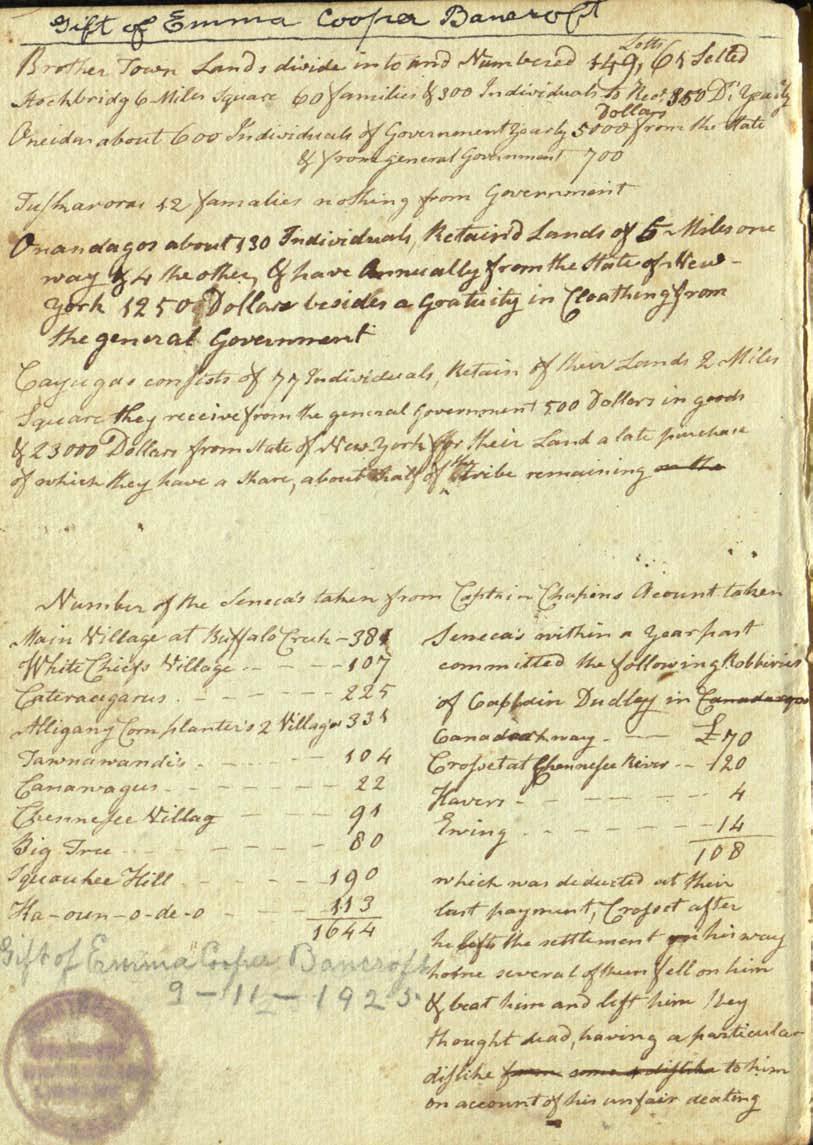 Gift of Emma Cooper Bancroft
Brother Town Lands divide into and Numbered 149, Lotts 61 Setled
Stockbridg 6 Miles Square 60 families & 300 Individuals to Rec. 350 D. Yearly
Oneidas about 600 Individuals of Government yearly 5000 Dollars from the State
& from general Government 700
Tuskaroras 12 famalies nothing from Government
Onandagos about 130 Individuals, Retain'd Lands of 5 Miles one
way & 4 the other, & have Annually from the State of New-
York 1250 Dollars besides a Gratuity in Cloathing from
the general Government
Cayugas consists of 77 Individuals, Retain of their Lands 2 Miles
Square they receive from the general Government 500 Dollars in goods
& 23000 Dollars from State of New York for their Land a late purchase
of which they have a Share, about half of the tribe remaining on the
Number of the Seneca's taken from Captain Chapins Acount taken
Main Village at Buffalo Creek - 381
White Chiefs Village - - - - - 107
Cateraugarus - - - - - - 225
Alligany Cornplanter's 2 Villages 331
Tawnawandi's - - - - - 104
Canawagus - - - - - - 22
Chennesee Villag - - - - 91
Big Tree - - - - - - 80
Squaukee Hill - - - - 190
Ka-oun-o-de-o - - - - 113
1644
Seneca's within a Year past
committed the following Robberies
of Captain Dudley in Canadarqua
Canadaway - - - £70
Crosset at Chennesee River - - 120
Havers - - - - - - 4
Ewing - - - - - - 14
108
which was deducted at their
last payment, Crosset after
he left the settlement on his way
home several of them fell on him
& beat him and left him they
thought dead, having a particular
dislike some dislike to him
on account of his unfair dealing
Gift of Emma Cooper Bancroft
9-11-1925